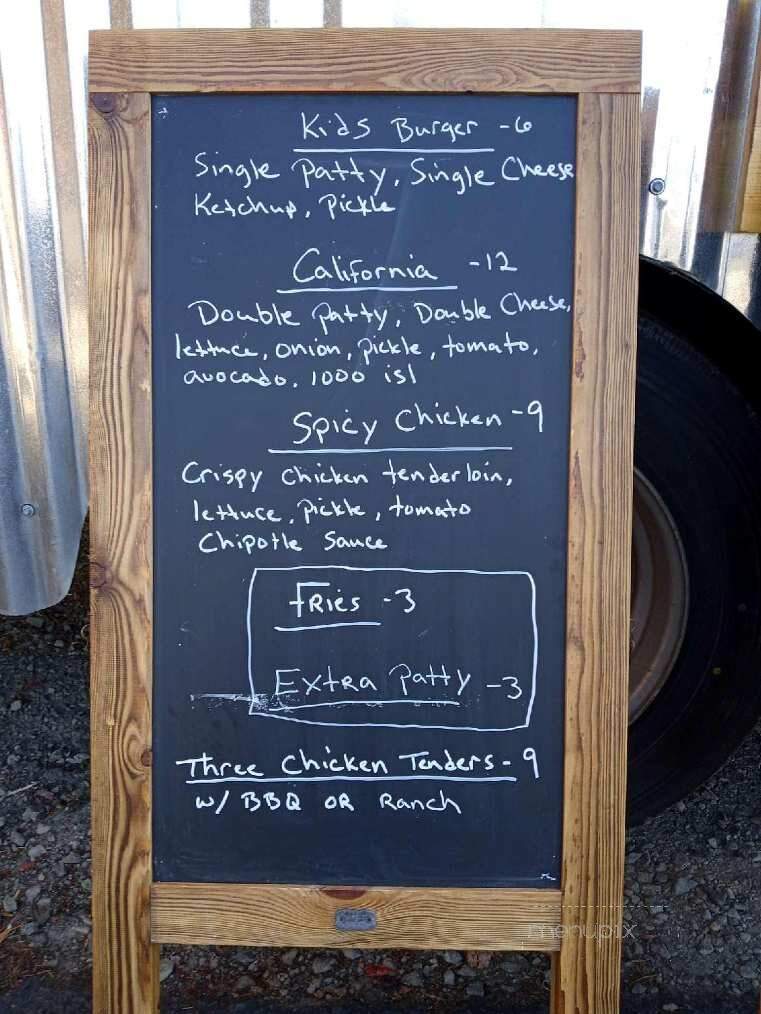 Kids Burger -6
Single Patty, Single Cheese
Ketchup, Pickle
California -12
Double Patty, Double Cheese,
lettuce, onion, pickle, tomato,
avocado, 1000 isl
Spicy Chicken -9
Crispy chicken tenderloin,
lettuce, pickle, tomato
Chipotle Sauce
FRies -3
Extra Patty -3
Three Chicken Tenders - 9
w/ BBQ OR Ranch
menupix